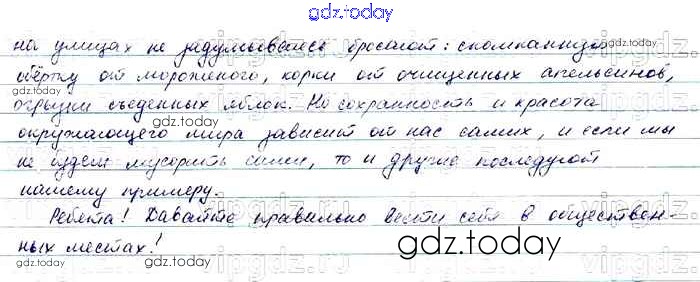 gdz.today
на улицах не задумываясь бросают: скомканную
обёртку от мороженого, корки от очищенных апельсинов,
gdz.today
огрызки съеденных яблок. Но сохранность и красота
окружающего мира зависит от нас самих, и если мы
не будем мусорить сами, то и другие последуют
нашему примеру.
vipgdz.ru
Ребята! Давайте правильно вести себя в обществен-
ных местах!
gdz.today
gdz.today
gdz.today